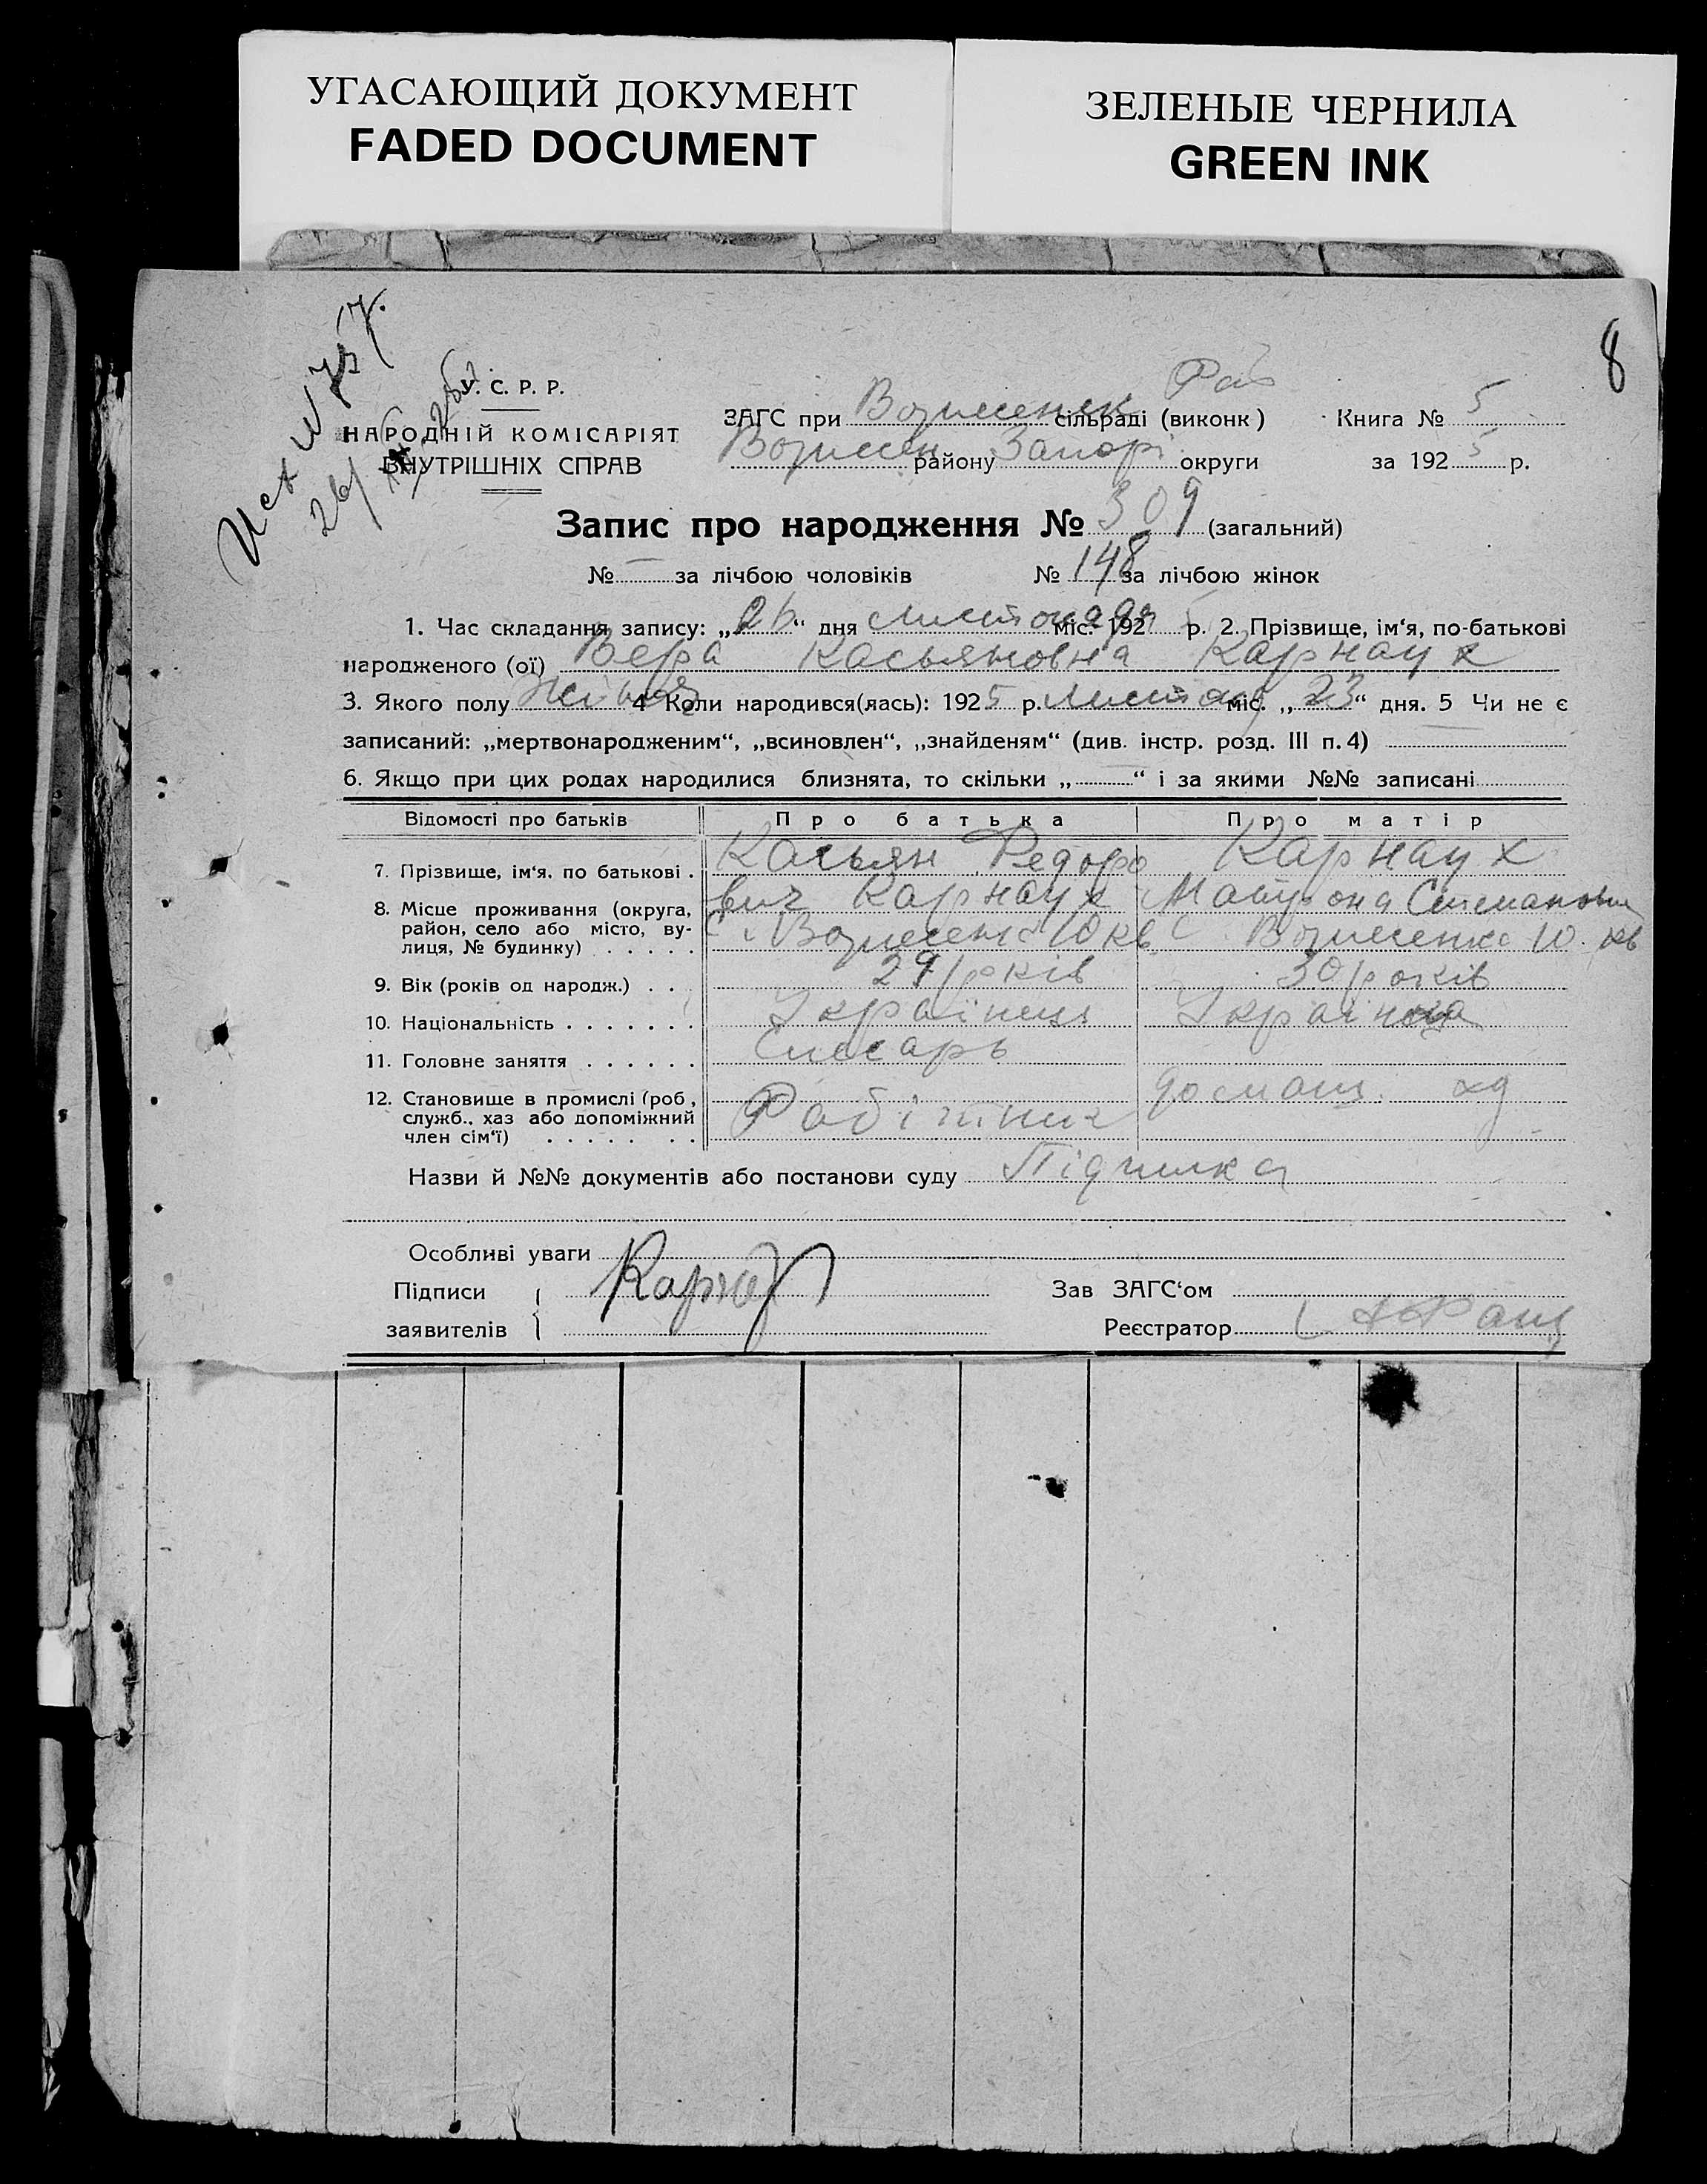 УГАСАЮЩИЙ ДОКУМЕНТ
FADED DOCUMENT
ЗЕЛЕНЫЕ ЧЕРНИЛА
GREEN INK
8
У. С. Р. Р.
НАРОДНІЙ КОМІСАРІЯТ
ВНУТРІШНІХ СПРАВ
Рай
ЗАГС при Вознесенск сільраді (виконк) Книга № 5
Вознесен району Запорі округи за 1925 р.
Запис про народження № 309 (загальний)
№ — за лічбою чоловіків № 148 за лічбою жінок
1. Час складання запису: „26“ дня листопада міс. 1925 р. 2. Прізвище, ім‘я, по-батькові
народженого (ої) Вера Касьяновна Карнаух
3. Якого полу 4 Коли народився(лась): 1925 р. листопад міс. „23“ дня. 5 Чи не є
записаний: „мертвонародженим“, „всиновлен“, „знайденям“ (див. інстр. розд. III п. 4)
6. Якщо при цих родах народилися близнята, то скільки „ “ і за якими №№ записані
Відомості про батьків Про батька Про матір
7. Прізвище, ім‘я, по батькові . Касьян Федоро Карнаух
вич Карнаух Матрона Степановна
8. Місце проживання (округа, район, село або місто, вулиця, № будинку) . . . . . с. Вознесенка 10 кв с. Вознесенка 10 кв
9. Вік (років од народж.) . . . 29 років 30 років
10. Національність . . . . . . . Українець Українка
11. Головне заняття . . . . . . Слесарь
12. Становище в промислі (роб, служб., хаз або допоміжний член сім‘ї) . . . . . . . Робітник домаш.
Назви й №№ документів або постанови суду Підписка
Особливі уваги
Підписи
заявителів Карнаух
Зав ЗАГС‘ом
Реєстратор